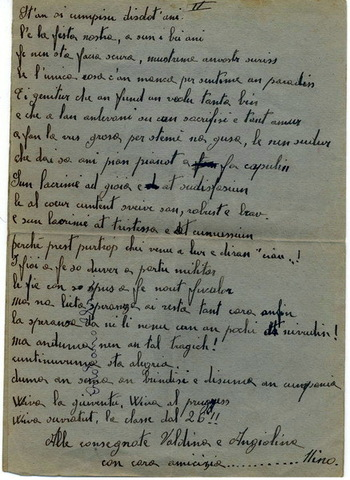 II
St'an as cumpiss disdot'ani
l'e la festa nostra, a sun i bei ani
fe nen sta facia scura, mustrima anvostr suriss
l'e l'unica cosa c'an manca per sentime an paradiss
I genitur che an fund un voelu tanta bin
e che a l'an anlevani su cun sacrifisi e tant amur
a fan la vus grosa per stemé na gusa, le nen sudur
che dau sa ani pian pianot a for capulin
Sun lacrime ad gioia e at sudisfasiun
le al cœur cuntent sveive san, robust e brav.
e sun lacrime at tristessa e at cumusiun
perchè prest purtrop chi venu a lur e diran "ciau..!
I fioi a fe so duver a partu militar
le fie con so spus a fe nouit fuculor
ma na lieta speranza ai resta tant cara anfin
la speransa da ni li nonu cun an pochi at nivudin!
ma anduma nen an tal tragich!
cuntinuvuma sta alegria
duma an sema an brindisi e disuma an cumpania
Wiva la giuventù, Wiva al prugress
Wiva suratut, la classe dal 26!!
Alle consegnate Valdina e Angiolina
con cara amicizia.......... Nino.